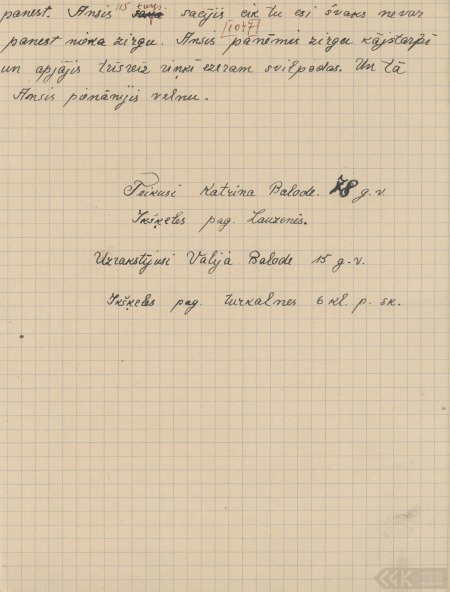 115 turp.
panest. Ansis saka sacījis cik tu esi švaks nevar
[1047]
panest nieka zirgu. Ansis paņēmis zirgu kājstarpī
un apjājis trīsreiz riņķī ezeram svilpodas. Un tā
Ansis pienānījis velnu.
Teikusi Katrīna Balode. 78 g.v.
Ikšķeles pag. Lauzenēs.
Uzrakstījusi Valija Balode 15 g.v.
Ikšķeles pag. Turkalnes 6 kl. p. sk.